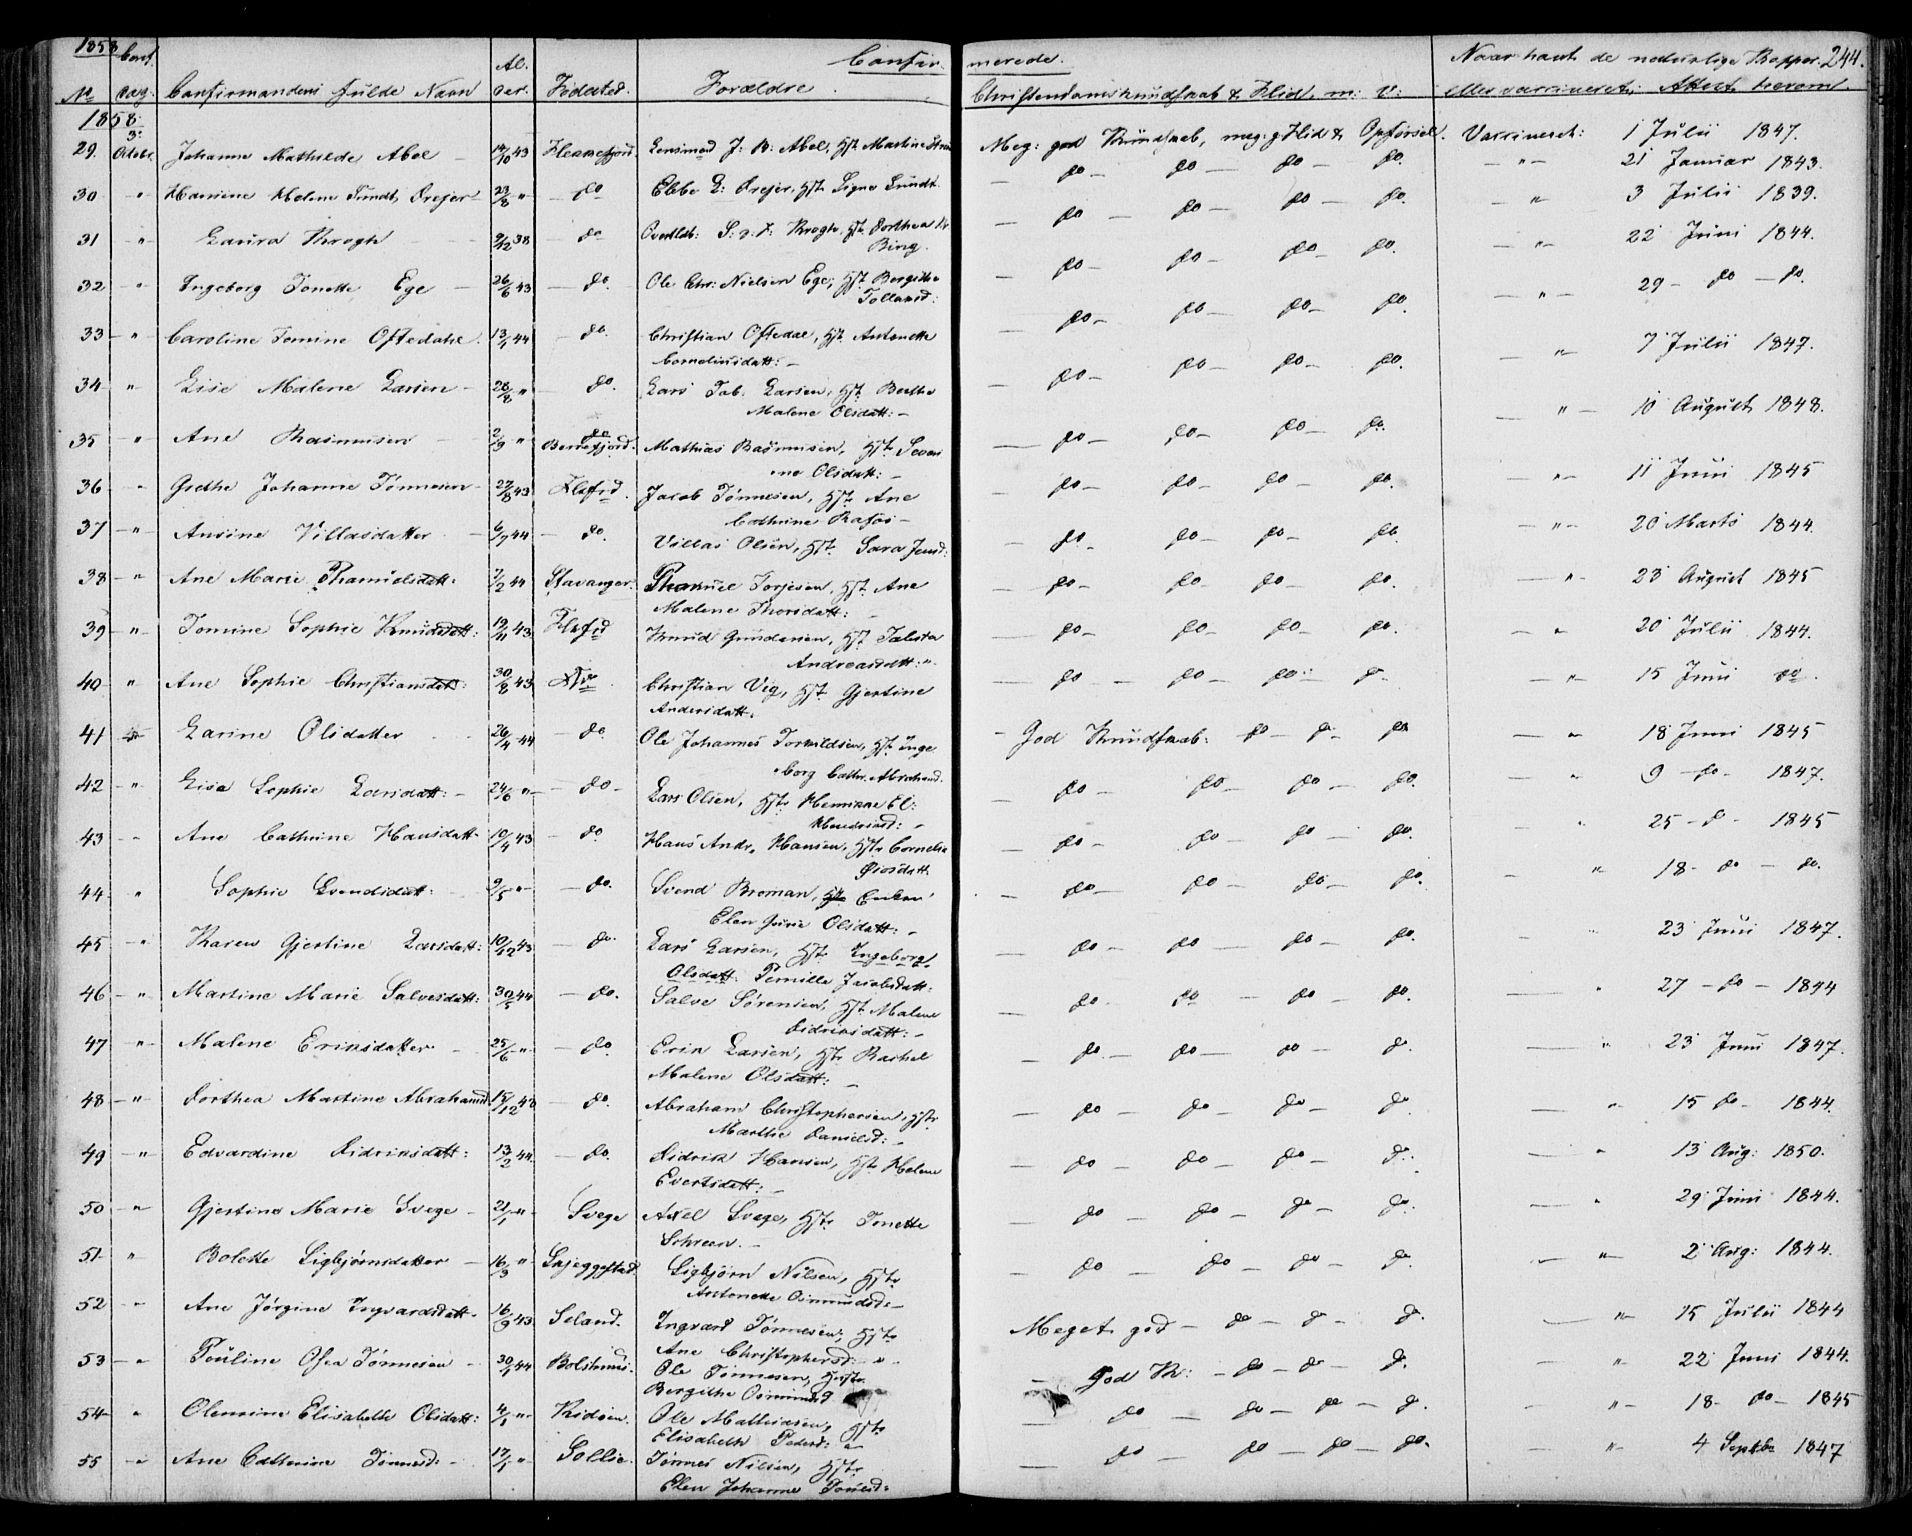 1858
Conf. dag
Confirmandens fulde Navn
Al. der.
Fødested.
Forældre.
Confirmerede.
Christendomskundskab & Flid, m: v:
Naar havt de naturlige Kopper 244.
eller vaccineret; Attest herom.
No
1858.
29. 3 Octobr. Johanne Mathilde Abel 14/10 43 Flekkefjord. J: B: Abel, Hst Martine Meg: god Kundskab, meg: g. Flid & Opførsel. Vaccineret: 1 Julii 1847.
30 " Hansine Helene Sundt Drejer 23/8 " do Ebbe E: Drejer, Hst Signe Sundt. do do do do. " 21 Januar 1843.
31 " Laura Krogh 9/12 38 do Krogh, Hst Dorthea
Bing. do do do do. " 3 Julii 1839.
32 " Ingeborg Tonette Ege 26/6 43 do. Ole Chr: Nielsen Ege, Hst Bergithe
Tollaksd: do do do do. " 22 Juni 1844.
33 " Caroline Tomine Oftedahl. 13/1 44 do. Christian Oftedal, Hst Antonette
Corneliusdatt: do do do do. " 29 do do.
34 " Lise Malene Larsen 28/8 " do. Lars Tob. Larsen, Hst Berthe
Malene Olsdatt: do do do do. " 7 Julii 1847.
35 " Ane Rasmusen 2/3 " do Berrefjord. Mathias Rasmusen, Hst Severi
ne Olsdatt: do do do do. " 10 August 1848.
36 " Grethe Johanne Tønnesen 29/8 43 Flkfjd. Jacob Tønnesen, Hst Ane
Cathrine Rafos do do do do. " 11 Juni 1845
37 " Ansine Villasdatter 6/7 44 do. Villas Olsen, Hst Sara Jensd: do do do do. " 20 Marts 1844.
38 " Ane Marie Thamuelsdatt: 7/2 44 Stavanger. Torjesen, Hst Ane
Malene Thorsdatt: do do do do. " 23 August 1845
39 " Tomine Sophie Knudsdatt: 19/11 43 Flkfjd Knud Gundersen, Hst Tabita
Andreasdatt: do do do do. " 20 Julii 1844.
40 " Ane Sophie Christiansdatt: 30/8 43 do Christian Vig, Hst Gjertine
Andersdatt. do do do do " 15 Juni do.
41 Larine Olsdatter 26/4 44 do. Ole Johannes Torkildsen, Hst Inge
borg Cathr. Abrahamd. God Kundskab: do do do " 18 Juni 1845
42 " Lisa Sophie Larsdatt: 24/6 " do Lars Olsen, Hst Henrikke El:
Hendriksd: do do do do. " 9 do 1847.
43 Ane Cathrine Hansdatt 10/4 43 do. Hans Andr. Hansen, Hst Cornelia
do do do do. " 25 do 1845
44 " Sophie Svendsdatt: 9/5 " do. Svend Broman, Enken
Elen Gurie Olsdatt: do do do do. " 18 do do.
45 " Karen Gjertine Larsdatt: 10/12 43 do. Lars Larsen, Hst Ingeborg
Olsdatt. Pernille Jacobsdatt: do do do do. " 23 Juni 1847.
46 " Martine Marie Salvesdatt: 30/5 44 do. Salve Sørensen, Hst Malene
Didriksdatt: do do do do. " 27 do 1844
47 " Malene Eriksdatter 25/6 " do. Erik Larsen, Hst Rachel
Malene Olsdatt: do do do do. " 23 Juni 1847.
48 " Dorthea Martine Abrahamsd. 15/12 43 do. Abraham Christophersen, Hst
Marthe Danielsd: do do do do. " 15 do 1844.
49 " Edvardine Didriksdatt: 13/2 44 do. Didrik Hansen, Hst Helene
Evertsdatt: do do do do. " 13 Aug: 1850.
50 " Gjertine Marie Svege 21/1 " Svege Axel Svege, Hst Tonette
do do do do. " 29 Juni 1844.
51 " Bolette Sigbjørnsdatter 16/3 " Snjeggestad Sigbjørn Nilsen, Hst
Antonette Osmundsd: do do do do. " 2 Aug: 1844.
52 " Ane Jørgine Ingvardsdatt. 16/9 43 Seland. Ingvard Tønnesen, Hst
Ane Christophersd: Meget god do do do. " 15 Julii 1844
53 " Pouline Osea Tønnesen 30/1 44 Bolshuus. Ole Tønnesen, Hst
Bergithe Osmundsd God K: do do do. " 22 Juni 1844.
54 " Olensine Elisabeth Olsdatt: 4/1 " Ole Mathiasen, Hst
Elisabeth Pedersd: do do do do. " 18 do 1845
55 " Ane Cathrine Tønnesd: 17/1 " Sollie. Tønnes Nilsen, Hst
Elen Johanne Tønesd: do do do do. " 4 Septbr 1847